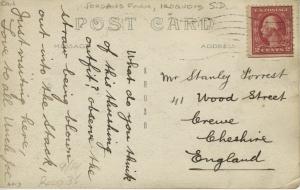 Jordans Farm, Iroquois S.D.
POST CARD
MESSAGE
ADDRESS
What do you think
of this threshing
outfit? observe the
straw being blown
out into the stack
Just visiting here,
Love to all Uncle Joe
Mr Stanley Forrest
41 Wood Street
Crewe
Cheshire
England
2 CENTS 2